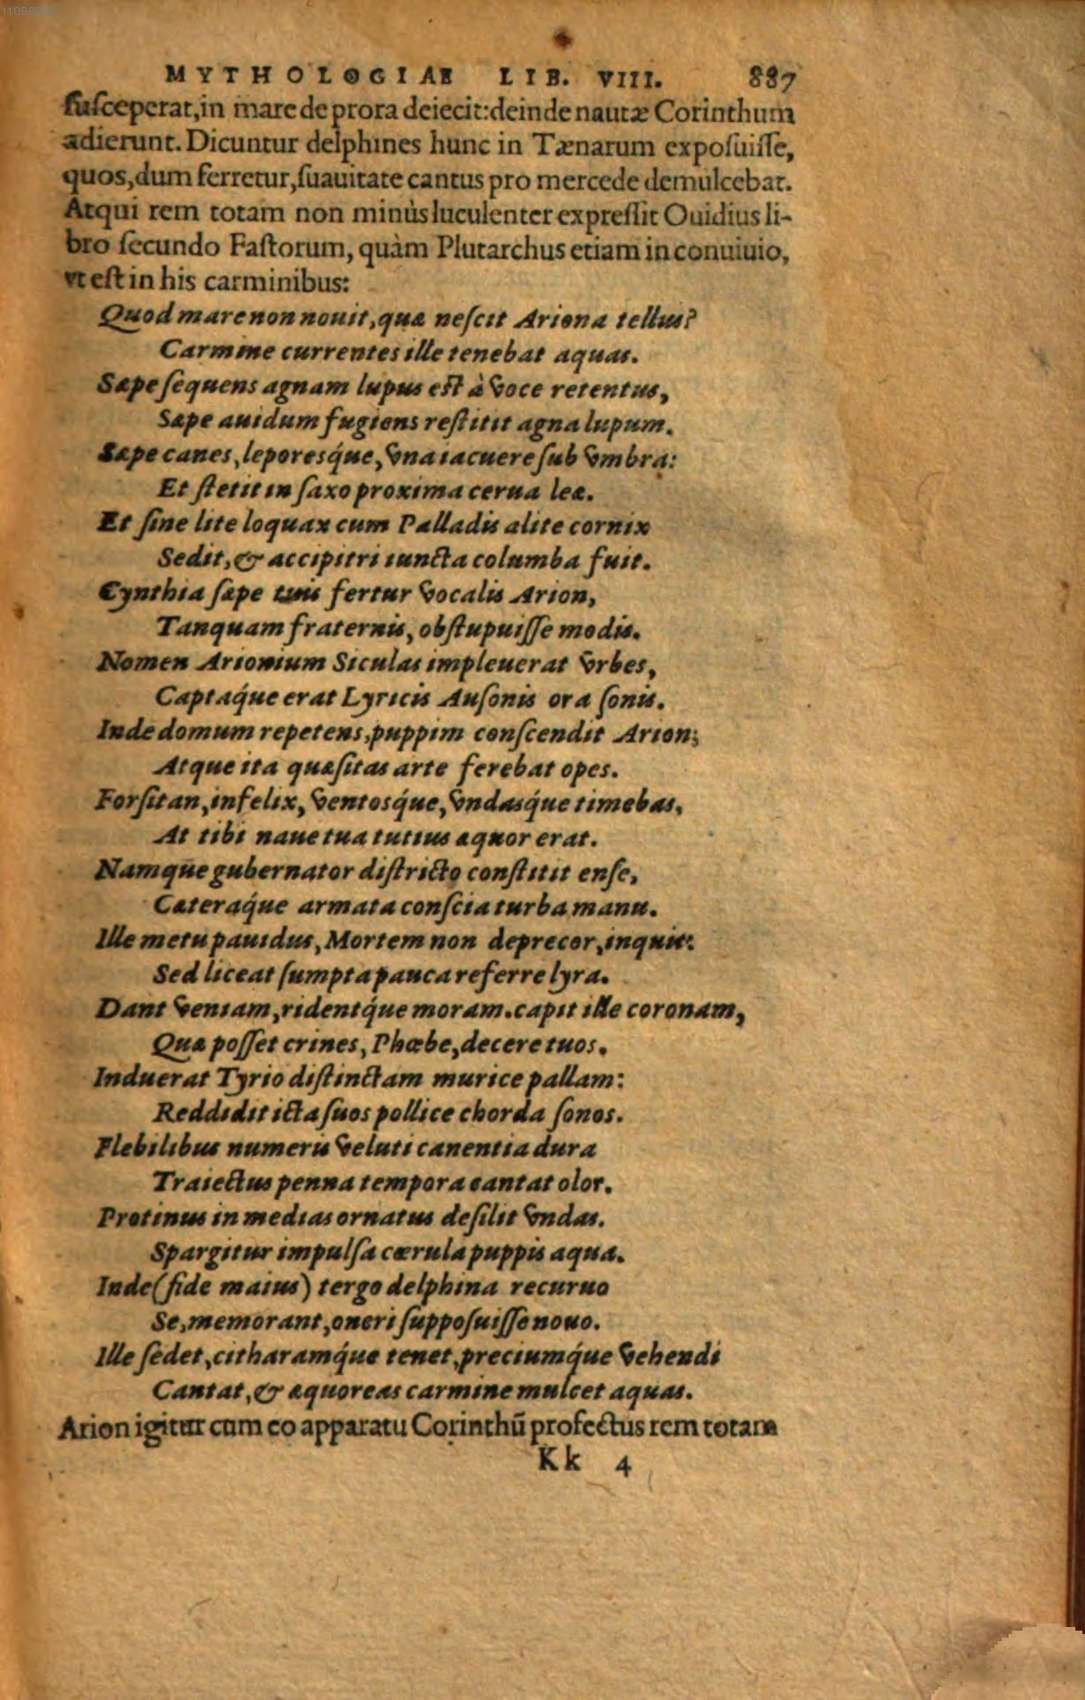 MYTHOLOGIAE LIB. VIII. 887
susceperat,in mare de prora deiecit:deinde nautæ Corinthum
adierunt. Dicuntur delphines hunc in Tænarum exposuisse,
quos,dum ferretur,suauitate cantus pro mercede demulcebat.
Atqui rem totam non minùs luculenter expressit Ouidius li-
bro secundo Fastorum, quàm Plutarchus etiam in conuiuio,
vt est in his carminibus:
Quod mare non nouit,quæ nescit Ariona tellus?
Carmine currentes ille tenebat aquas.
Sæpe sequens agnam lupus est à voce retentus,
Sæpe auidum fugiens restitit agna lupum.
Sæpe canes,leporesq́ue,vna iacuere sub vmbra:
Et stetit in saxo proxima cerua leæ.
Et sine lite loquax cum Palladis alite cornix
Sedit,& accipitri iuncta columba fuit.
Cynthia sæpe tuis fertur vocalis Arion,
Tanquam fraternis, obstupuisse modis.
Nomen Arionium Siculas impleuerat vrbes,
Captaq́ue erat Lyricis Ausonis ora sonis.
Inde domum repetens,puppim conscendit Arion;
Atque ita quæsitas arte ferebat opes.
Forsitan,infelix, ventosq́ue,vndasq́ue timebas,
At tibi naue tua tutius æquor erat.
Namque gubernator districto constitit ense,
Cæteraq́ue armata conscia turba manu.
Ille metu pauidus,Mortem non deprecor,inquit:
Sed liceat sumpta pauca referre lyra.
Dant veniam,ridentq́ue moram.capit ille coronam,
Quæ posset crines, Phœbe,decere tuos.
Induerat Tyrio distinctam murice pallam:
Reddidit icta suos pollice chorda sonos.
Flebilibus numeris veluti canentia dura
Traiectus penna tempora cantat olor.
Protinus in medias ornatus desilit vndas.
Spargitur impulsa cœrula puppis aqua.
Inde(fide maius) tergo delphina recuruo
Se,memorant,oneri supposuisse nouo.
Ille sedet,citharamq́ue tenet,preciumq́ue vehendi
Cantat,& æquoreas carmine mulcet aquas.
Arion igitur cum eo apparatu Corinthũ profectus rem totam
Kk 4